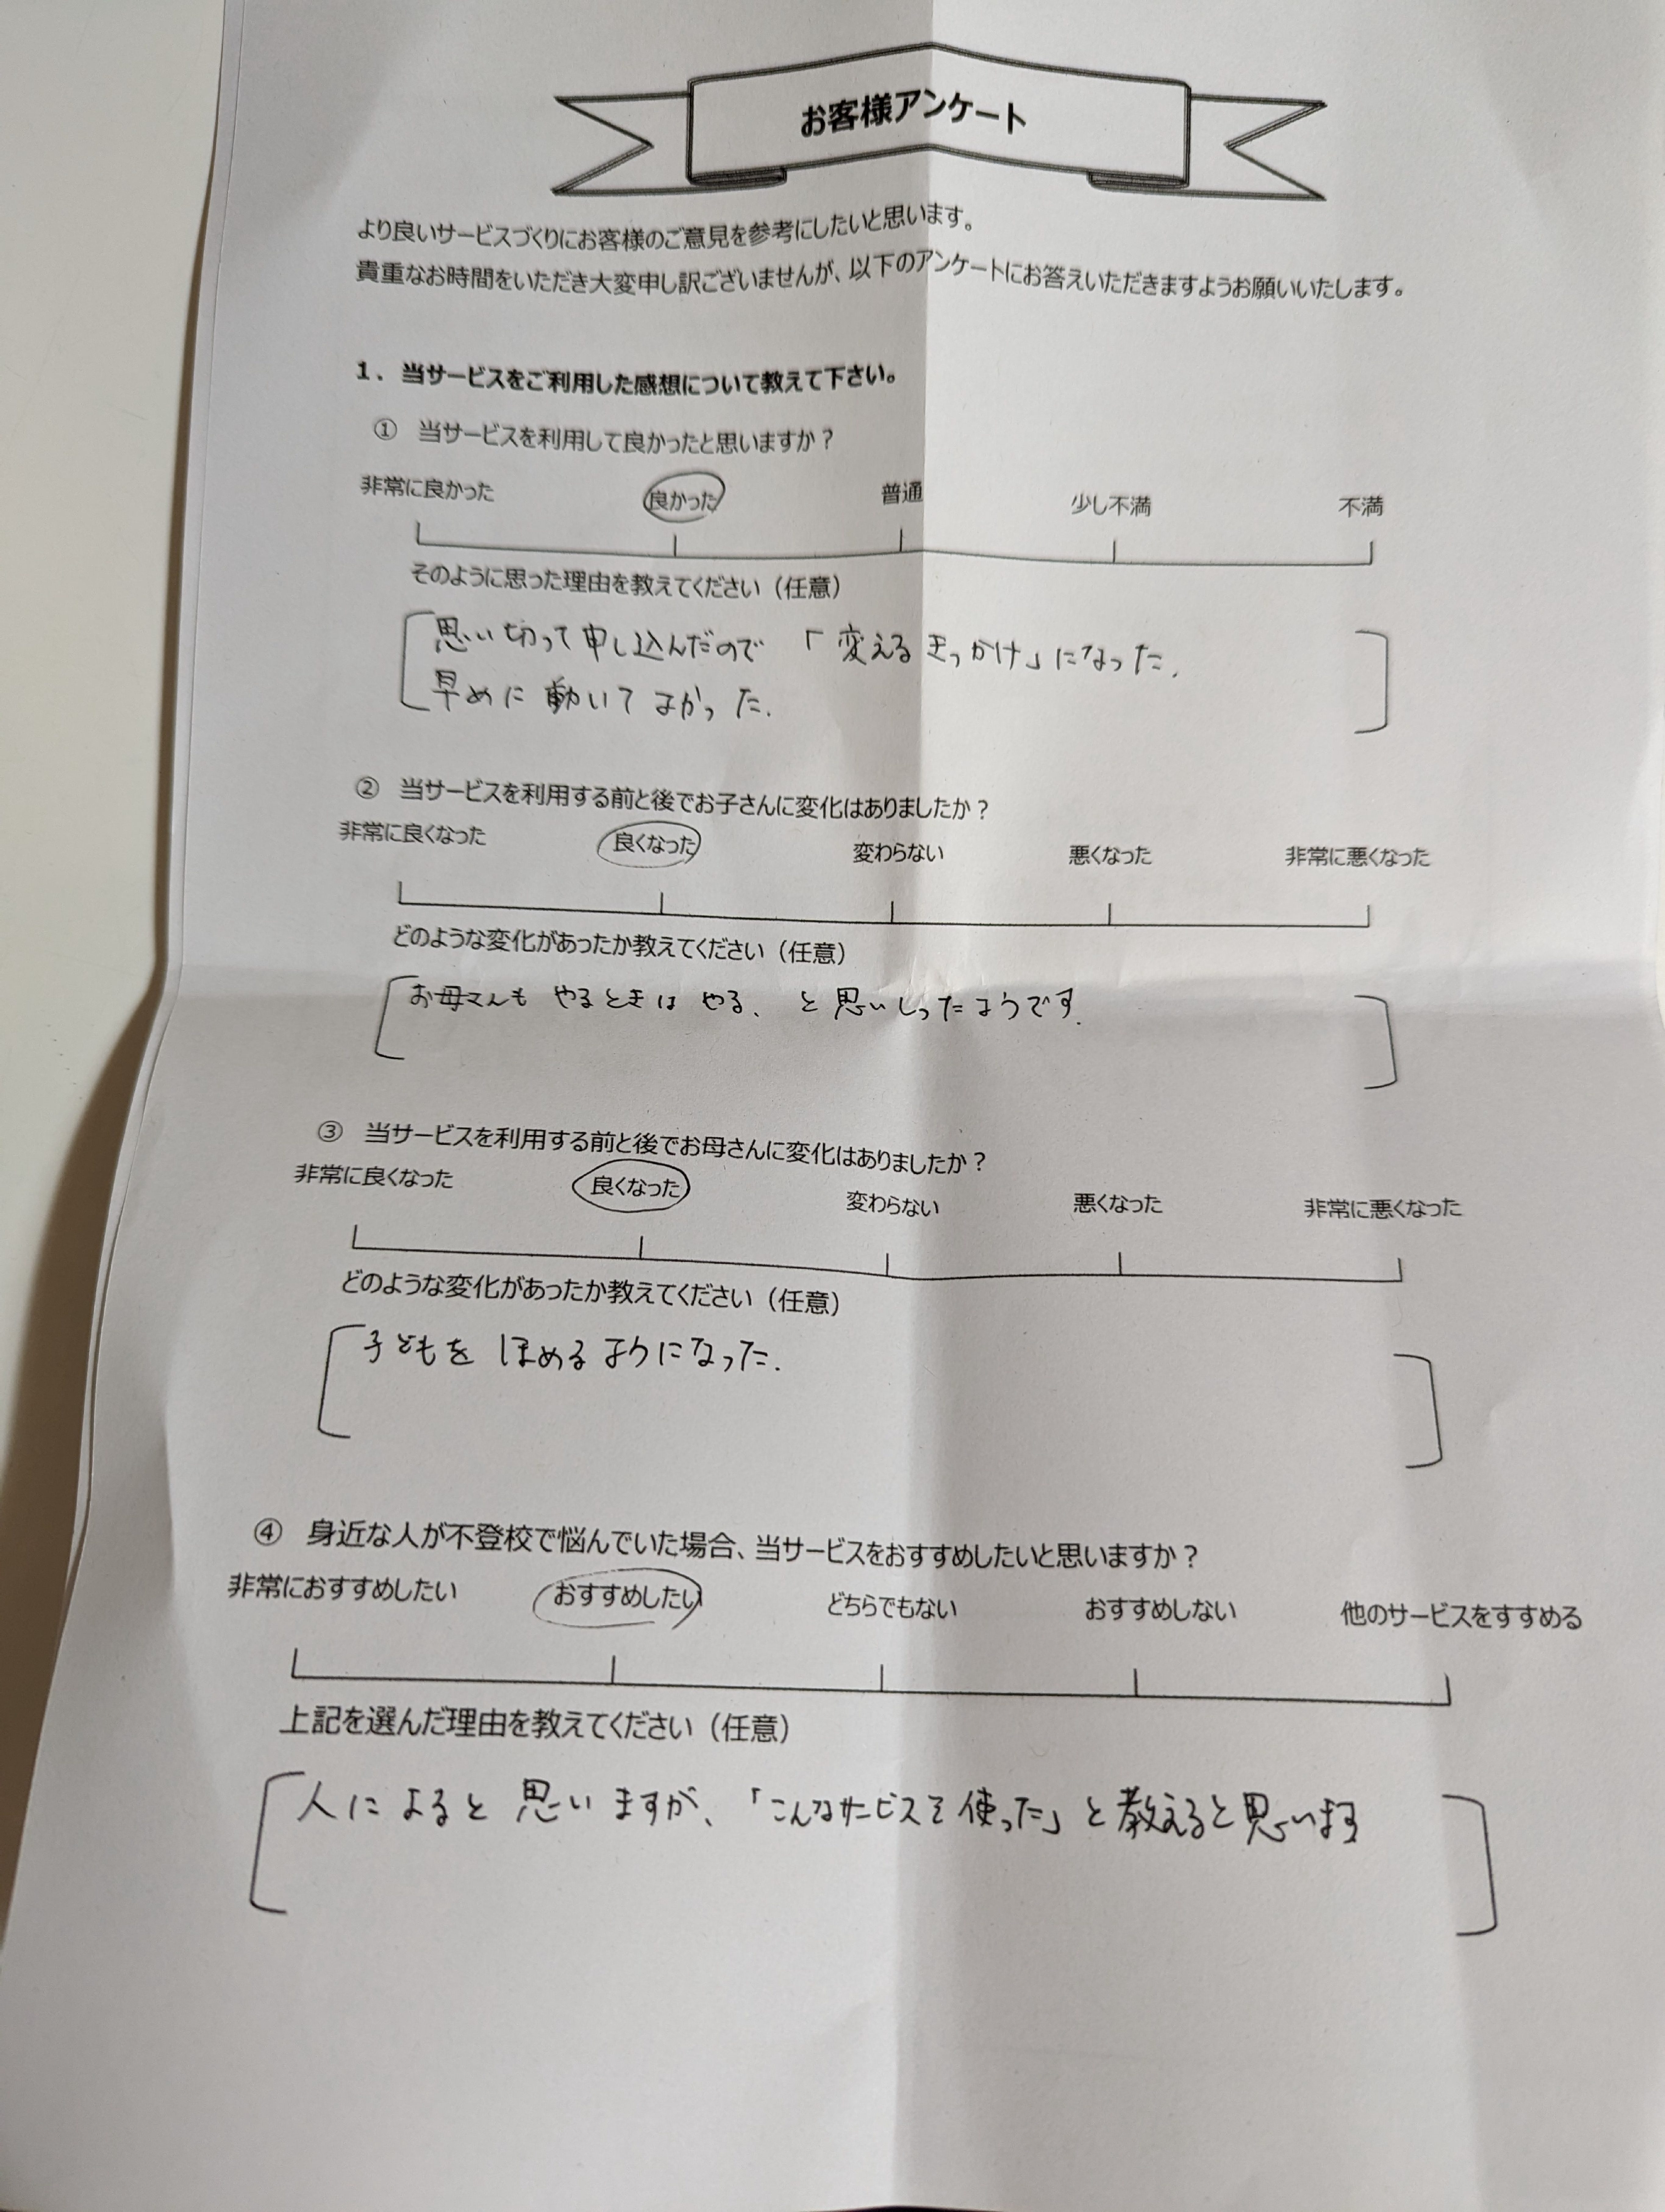 お客様アンケート
より良いサービスづくりにお客様のご意見を参考にしたいと思います。
貴重なお時間をいただき大変申し訳ございませんが、以下のアンケートにお答えいただきますようお願いいたします。
1．当サービスをご利用した感想について教えて下さい。
① 当サービスを利用して良かったと思いますか？
非常に良かった 良かった 普通 少し不満 不満
そのように思った理由を教えてください（任意）
思い切って申し込んだので「変えるきっかけ」になった.
早めに動いてよかった.
② 当サービスを利用する前と後でお子さんに変化はありましたか？
非常に良くなった 良くなった 変わらない 悪くなった 非常に悪くなった
どのような変化があったか教えてください（任意）
お母さんも やるときは やる、と思いしったようです.
③ 当サービスを利用する前と後でお母さんに変化はありましたか？
非常に良くなった 良くなった 変わらない 悪くなった 非常に悪くなった
どのような変化があったか教えてください（任意）
子どもを ほめるようになった.
④ 身近な人が不登校で悩んでいた場合、当サービスをおすすめしたいと思いますか？
非常におすすめしたい おすすめしたい どちらでもない おすすめしない 他のサービスをすすめる
上記を選んだ理由を教えてください（任意）
人によると思いますが、「こんなサービスを使った」と教えると思います